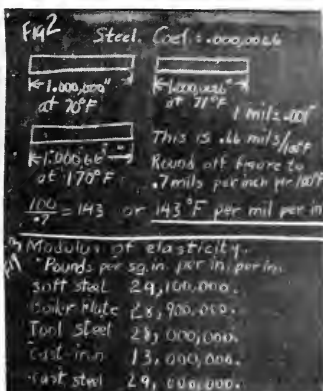 Fig 2 Steel. Coef: .0000066
1.000,000" 1.000,0066"
at 70°F at 71°F
1 mil = .001"
This is .66 mils/100°F
1.000,66"
at 170°F
Round off figure to
.7 mils per inch per 100°F
100/.7 = 143 or 143°F per mil per in
Modulus of elasticity.
Pounds per sq. in. per in. per in.
Soft steel 29,100,000.
Boiler Plate 28,900,000.
Tool steel 28,000,000.
Cast iron 13,000,000.
Cast steel 29,000,000.